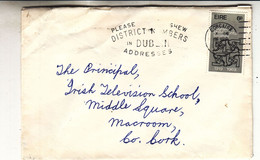 PLEASE SHEW
DISTRICT NUMBERS
IN DUBLIN
ADDRESSES
ÉIRE
The Principal,
Irish Television School,
Middle Square,
Macroom,
Co. Cork.